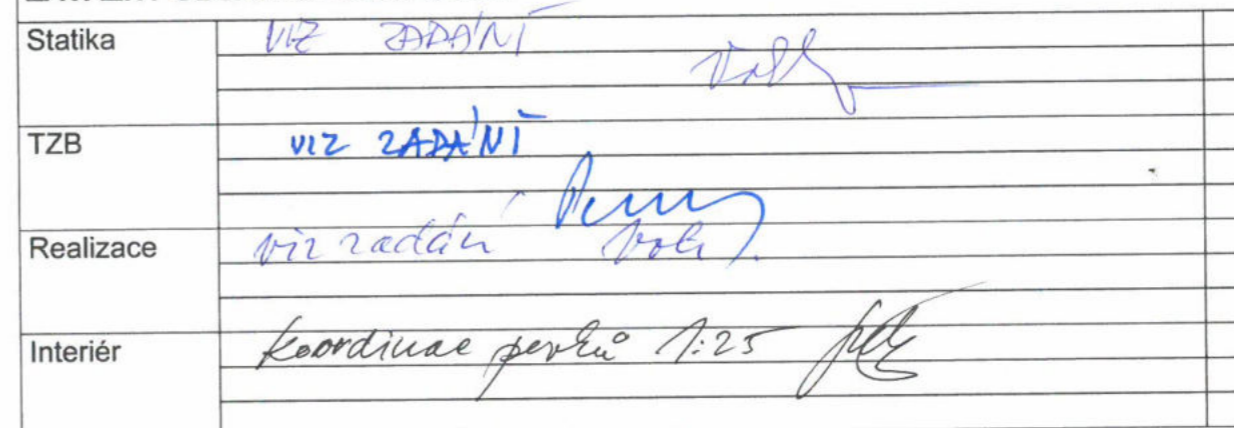 Statika VIZ ZADÁNÍ
TZB VIZ ZADÁNÍ
Realizace viz zadání
Interiér koordinace prvků 1:25